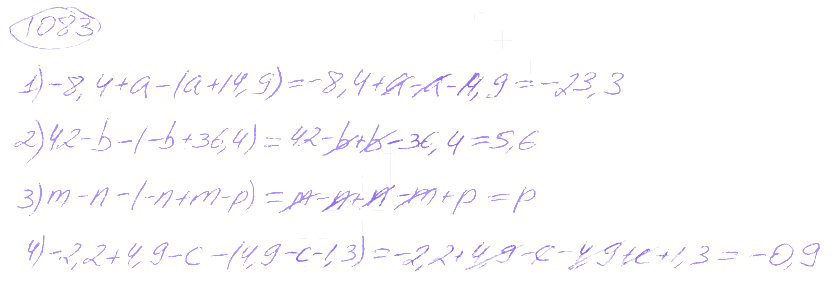 1083
1) -8,4+a-(a+14,9)=-8,4+a-a-14,9=-23,3
2) 42-b-(-b+36,4)=42-b+b-36,4=5,6
3) m-n-(-n+m-p)=m-n+n-m+p=p
4) -2,2+4,9-c-(4,9-c-1,3)=-2,2+4,9-c-4,9+c+1,3=-0,9